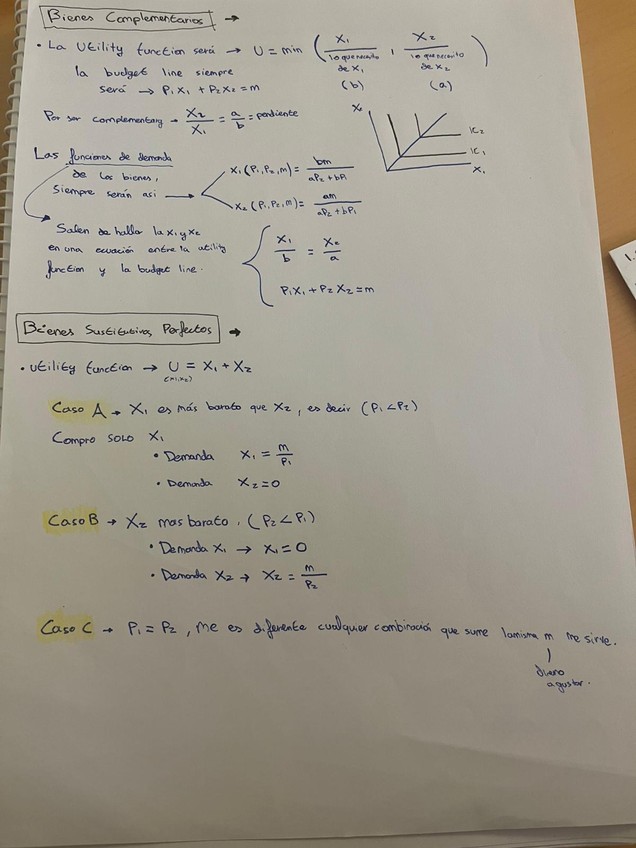 Bienes Complementarios →
• La Utility function será → U = min ( X₁ / lo que necesito de X₁ (b) , X₂ / lo que necesito de X₂ (a) )
la budget line siempre
será → P₁X₁ + P₂X₂ = m
Por ser complementary → X₂/X₁ = a/b = pendiente
X₂
IC₂
IC₁
X₁
Las funciones de demanda
de los bienes,
siempre serán así →
X₁(P₁,P₂,m) = bm / aP₂ + bP₁
X₂(P₁,P₂,m) = am / aP₂ + bP₁
Salen de hallar la X₁ y X₂
en una ecuación entre la utility
function y la budget line.
X₁/b = X₂/a
P₁X₁ + P₂X₂ = m
Bienes Sustitutivos Perfectos →
• Utility function → U = X₁ + X₂
Caso A → X₁ es más barato que X₂, es decir (P₁ < P₂)
Compro SOLO X₁
• Demanda X₁ = m/P₁
• Demanda X₂ = 0
Caso B → X₂ mas barato, (P₂ < P₁)
• Demanda X₁ → X₁ = 0
• Demanda X₂ → X₂ = m/P₂
Caso C → P₁ = P₂, me es diferente cualquier combinación que sume la misma m me sirve.
dinero
a gastar.